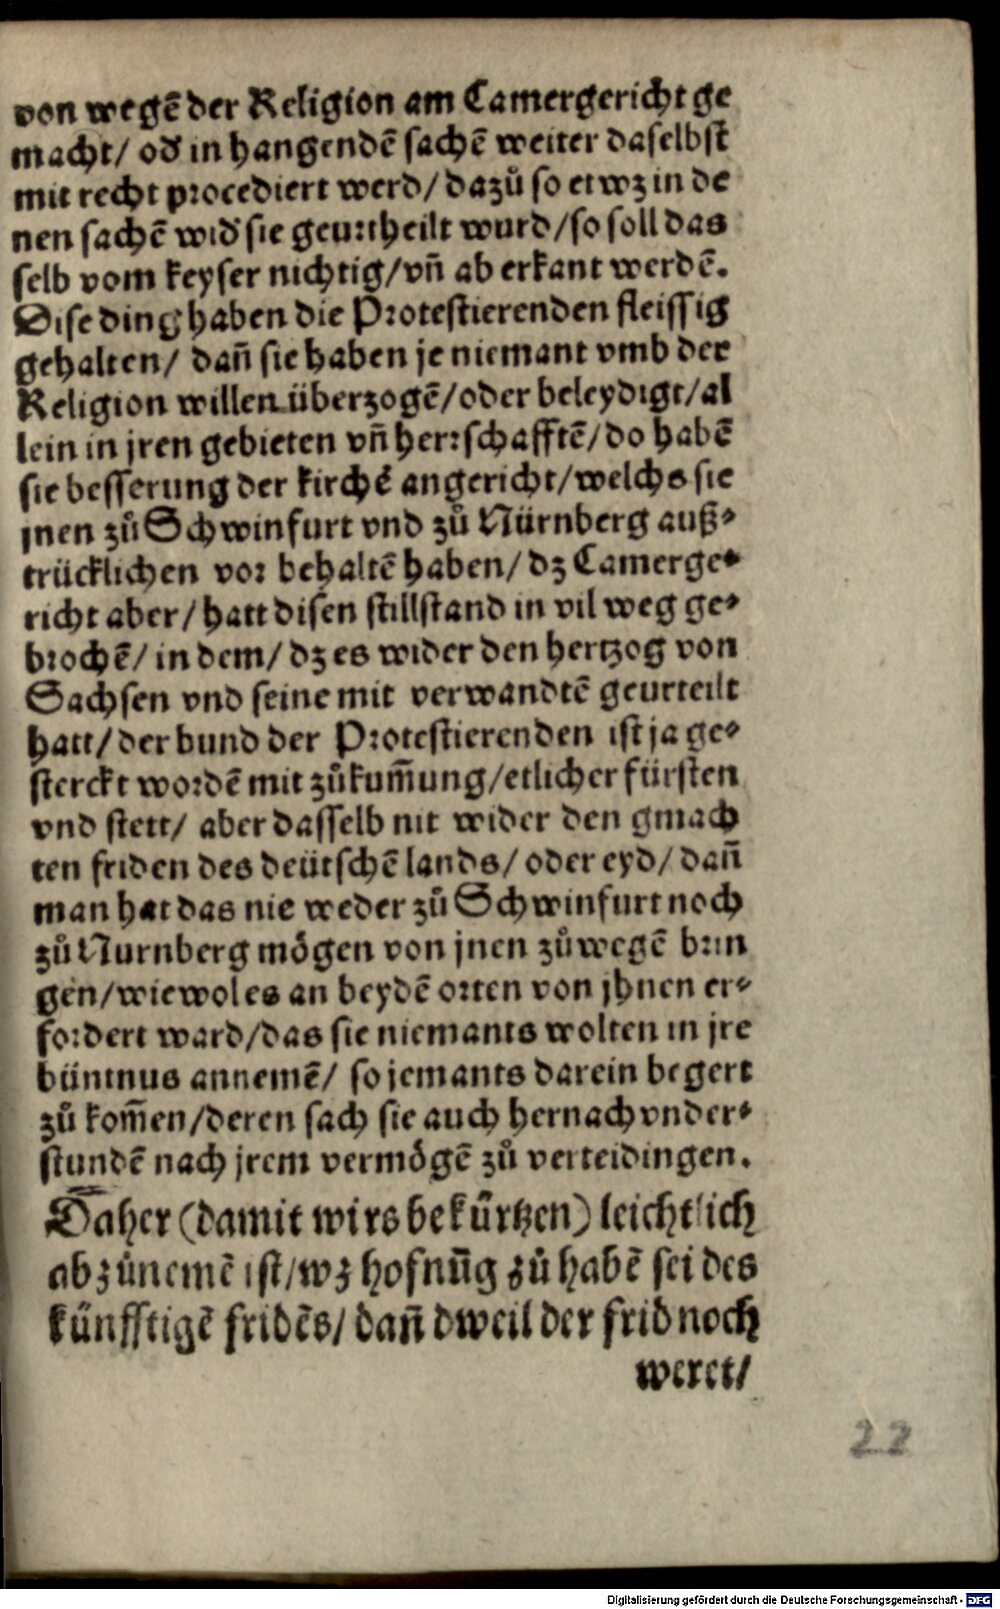 von wegē der Religion am Camergericht ge
macht/ od' in hangendē sachē weiter daselbst
mit recht procediert werd/ dazů so etwz in de
nen sachē wid' sie geurtheilt wurd/so soll das
selb vom keyser nichtig/vn̄ ab erkant werdē.
Dise ding haben die Protestierenden fleissig
gehalten/ dan̄ sie haben je niemant vmb der
Religion willen überzogē/oder beleydigt/al
lein in jren gebieten vn̄ herrschafftē/do habē
sie besserung der kirchē angericht/welchs sie
jnen zů Schwinfurt vnd zů Nürnberg auß⸗
trücklichen vor behaltē haben/ dz Camerge⸗
richt aber/ hatt disen stillstand in vil weg ge⸗
brochē/ in dem/ dz es wider den hertzog von
Sachsen vnd seine mit verwandtē geurteilt
hatt/ der bund der Protestierenden ist ja ge⸗
sterckt wordē mit zůkum̄ung/etlicher fürsten
vnd stett/ aber dasselb nit wider den gmach
ten friden des deütschē lands/ oder eyd/ dan̄
man hat das nie weder zů Schwinfurt noch
zů Nurnberg mögen von jnen zůwegē brin
gen/wiewol es an beydē orten von jhnen er⸗
fordert ward/das sie niemants wolten in jre
büntnus annemē/ so jemants darein begert
zů kom̄en/deren sach sie auch hernach vnder⸗
stundē nach jrem vermögē zů verteidingen.
Daher (damit wirs bekürtzen) leichtlich
abzůnemē ist/wz hofnūg zů habē sei des
künfftigē fridēs/ dan̄ dweil der frid noch
weret/
22
Digitalisierung gefördert durch die Deutsche Forschungsgemeinschaft - DFG